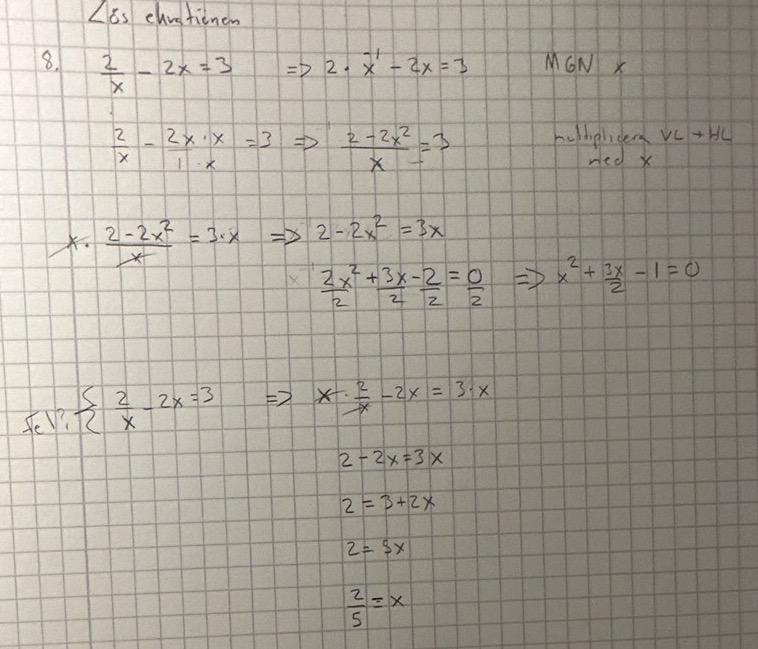 Lös ekvationen
8. 2/x - 2x = 3 => 2 · x^-1 - 2x = 3 MGN x
2/x - (2x · x)/(1 · x) = 3 => (2 - 2x²)/x = 3 multiplicera VL + HL
med x
x · (2 - 2x²)/x = 3 · x => 2 - 2x² = 3x
2x²/2 + 3x/2 - 2/2 = 0/2 => x² + 3x/2 - 1 = 0
Fel? { 2/x - 2x = 3 => x · 2/x - 2x = 3 · x
2 - 2x = 3x
2 = 3 + 2x
2 = 5x
2/5 = x